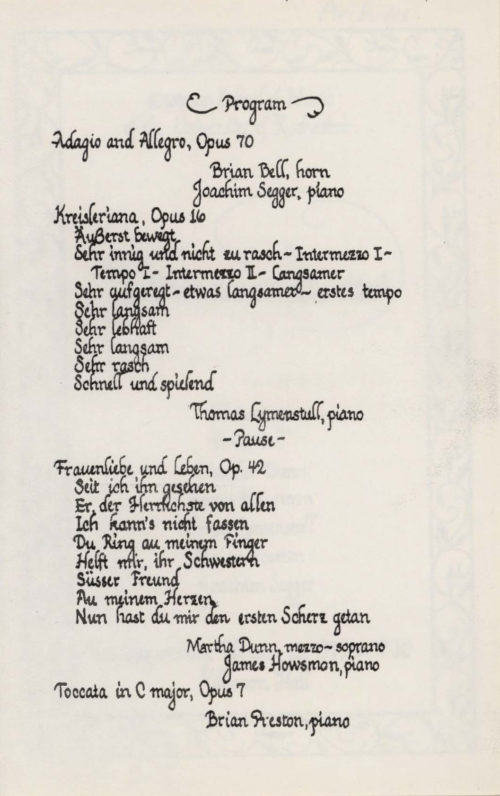 Program
Adagio and Allegro, Opus 70
Brian Bell, horn
Joachim Segger, piano
Kreisleriana, Opus 16
Äußerst bewegt
Sehr innig und nicht zu rasch - Intermezzo I -
Tempo I - Intermezzo II - Langsamer
Sehr aufgeregt - etwas langsamer - erstes tempo
Sehr langsam
Sehr lebhaft
Sehr langsam
Sehr rasch
Schnell und spielend
Thomas Lymenstull, piano
- Pause -
Frauenliebe und Leben, Op. 42
Seit ich ihn gesehen
Er, der Herrlichste von allen
Ich kann's nicht fassen
Du Ring au meinem Finger
Helft mir, ihr Schwestern
Süsser Freund
Au meinem Herzen,
Nun hast du mir den ersten Scherz getan
Martha Dunn, mezzo-soprano
James Howsmon, piano
Toccata in C major, Opus 7
Brian Preston, piano